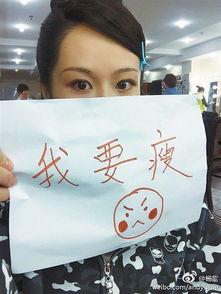 我要瘦
@杨紫
weibo.com/andyyzi